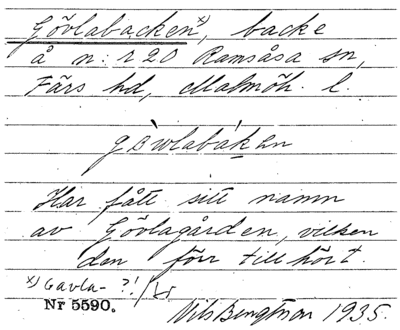 Gövlabacken x), backe
å n:r 20 Ramsåsa sn,
Färs hd, Malmöh. l.
gȯ̀wlabák̲en
Har fått sitt namn
av Gövlagården, vilken
den förr tillhört.
x) Gavla- ?!
Nr 5590.
Nils Bengtson 1935.